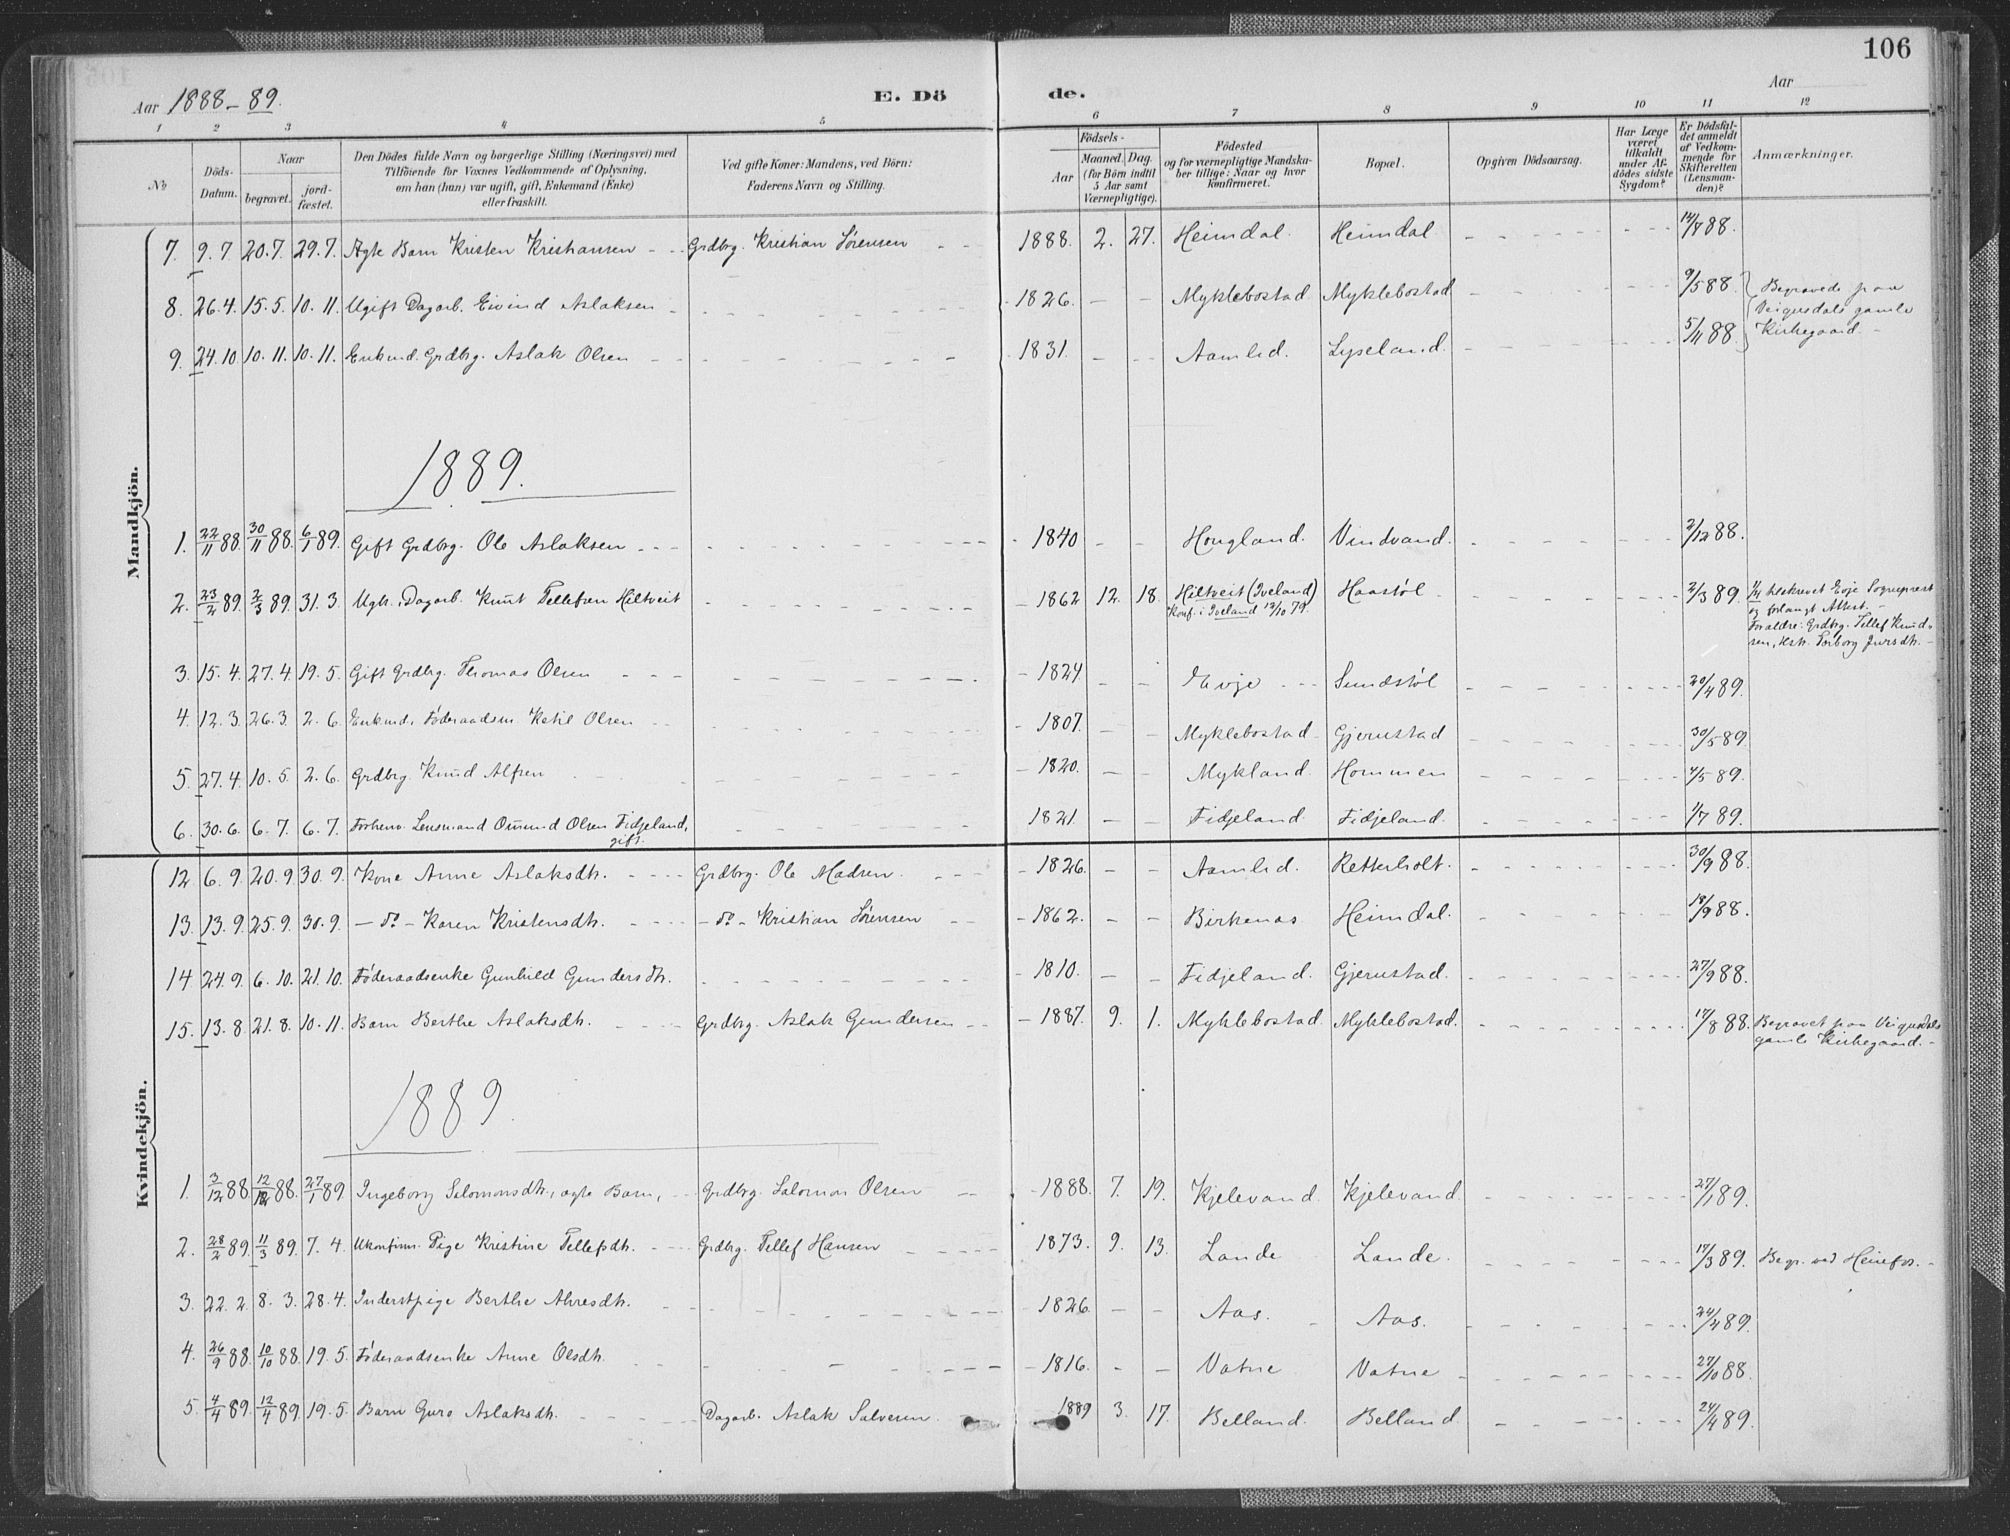 106
Aar 1888-89.
E. Dö de.
Aar
1 2 3 4 5 6 7 8 9 10 11 12
No
Döds-Datum.
Naar
begravet.
jord-fæstet.
Den Dödes fulde Navn og borgerlige Stilling (Næringsvei) med
Tilföiende for Voxnes Vedkommende af Oplysning,
om han (hun) var ugift, gift, Enkemand (Enke)
eller fraskilt.
Ved gifte Koner: Mandens, ved Börn:
Faderens Navn og Stilling.
Födsels-
Aar
Maaned. Dag.
(for Börn indtil
5 Aar samt
Værnepligtige).
Födested
og for værnepligtige Mandska-
ber tillige: Naar og hvor
konfirmeret.
Bopæl.
Opgiven Dödsaarsag.
Har Læge
været
tilkaldt
under Af-
dödes sidste
Sygdom?
Er Dödsfal-
det anmeldt
af Vedkom-
mende for
Skifteretten
(Lensman-
den)?
Anmærkninger.
Mandkjön.
7. 9.7 20.7. 29.7. Ægte Barn Kristen Kristiansen Grdbrg. Kristian Sørensen 1888. 2. 27. Heimdal. Heimdal 14/8 88.
8. 26.4. 15.5. 10.11. Ugift Dagarb. Eivind Aslaksen 1826. Myklebostad Myklebostad 9/5 88. Begravede paa
Veigusdals gamle
9. 24.10 10.11. 10.11. Enkmd. Grdbrg. Aslak Olsen 1831. Aamlid. Lyseland. 5/11 88. Kirkegaard.
1889.
1. 22/11 88. 30/11 88. 6/1 89. Gift Grdbrg. Ole Aslaksen 1840 Hougland. Vindvand. 2/12 88.
2. 23/2 89. 2/3 89. 31.3. Ugk. Dagarb. Knut Tellefsen Hiltveit 1862 12. 18. Hiltveit (Iveland) Haastøl 2/3 89. 1/4 tilskrevet Evje Sogneprest
Konf. i Iveland 12/10 79. og forlangt Attest.
Forældre: Grdbrg. Tellef Knud-
sen, Hst. Torborg Jversdtr.
3. 15.4. 27.4. 19.5. Gift Grdbrg. Thomas Olsen 1824. Evje Sundstøl 20/4 89.
4. 12.3. 26.3. 2.6. Enkmd. Føderaadsm. Ketil Olsen 1807. Myklebostad Gjerustad 30/5 89.
5. 27.4. 10.5. 2.6. Grdbrg Knud Alfsen 1820. Mykland. Hommen 4/5 89.
6. 30.6. 6.7. 6.7. Forhenv. Lensmand Omund Olsen Fidjeland, 1821. Fidjeland. Fidjeland. 1/7 89.
gift.
Kvindekjön.
12. 6.9. 20.9. 30.9. Kone Anne Aslaksdtr. Grdbrg. Ole Madsen. 1826. Aamlid. Retterholt. 30/9 88.
13. 13.9. 25.9. 30.9. - do - Karen Kristensdtr. - do - Kristian Sørensen 1862. Birkenæs Heimdal. 18/9 88.
14 24.9. 6.10. 21.10. Føderaadsenke Gunhild Gundersdtr. 1810. Fidjeland. Gjerustad. 27/9 88.
15. 13.8. 21.8. 10.11. Barn Berthe Aslaksdtr. Grdbrg. Aslak Gundersen 1887. 9. 1. Myklebostad. Myklebostad. 17/8 88. Begravet paa Veigusdals
gamle Kirkegaard.
1889.
1. 3/12 88. 12/12 88. 27/1 89. Ingeborg Salomonsdtr. ægte Barn, Grdbrg. Salomon Olsen 1888. 7. 19. Kjelevand. Kjelevand. 27/1 89.
2. 28/2 89. 11/3 89. 7.4. Ukonfirm. Pige Kristine Tellefsdtr. Grdbrg. Tellef Hansen 1873. 9. 13. Lande Lande. 17/3 89. Begr. ved Heinefos.
3. 22.2. 8.3. 28.4. Inderstpige Berthe Ahresdtr. 1826. Aas. Aas. 24/4 89.
4. 26/9 88. 10/10 88. 19.5. Føderaadsenke Anne Olsdtr. 1816. Vatne Vatne 27/10 88.
5. 4/4 89. 12/4 89. 19.5. Barn Guro Aslaksdtr. Dagarb. Aslak Salvesen. 1889 3. 17. Belland. Belland. 24/4 89.